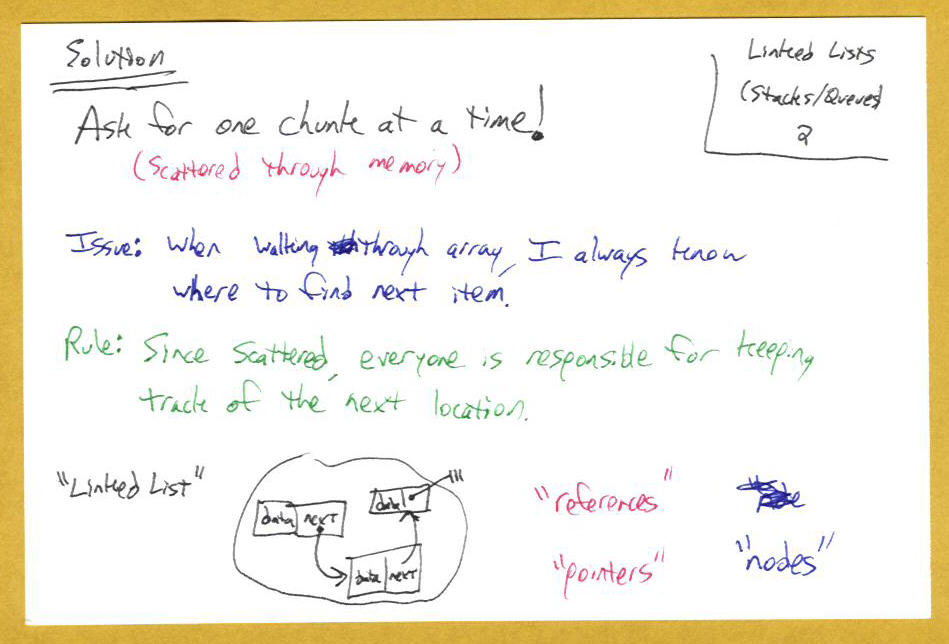 Solution
Linked Lists
(Stacks/Queues)
2
Ask for one chunk at a time!
(Scattered through memory)
Issue: When walking through array, I always know
where to find next item.
Rule: Since scattered, everyone is responsible for keeping
track of the next location.
"Linked List"
data next
data
data next
"references"
"pointers"
"nodes"